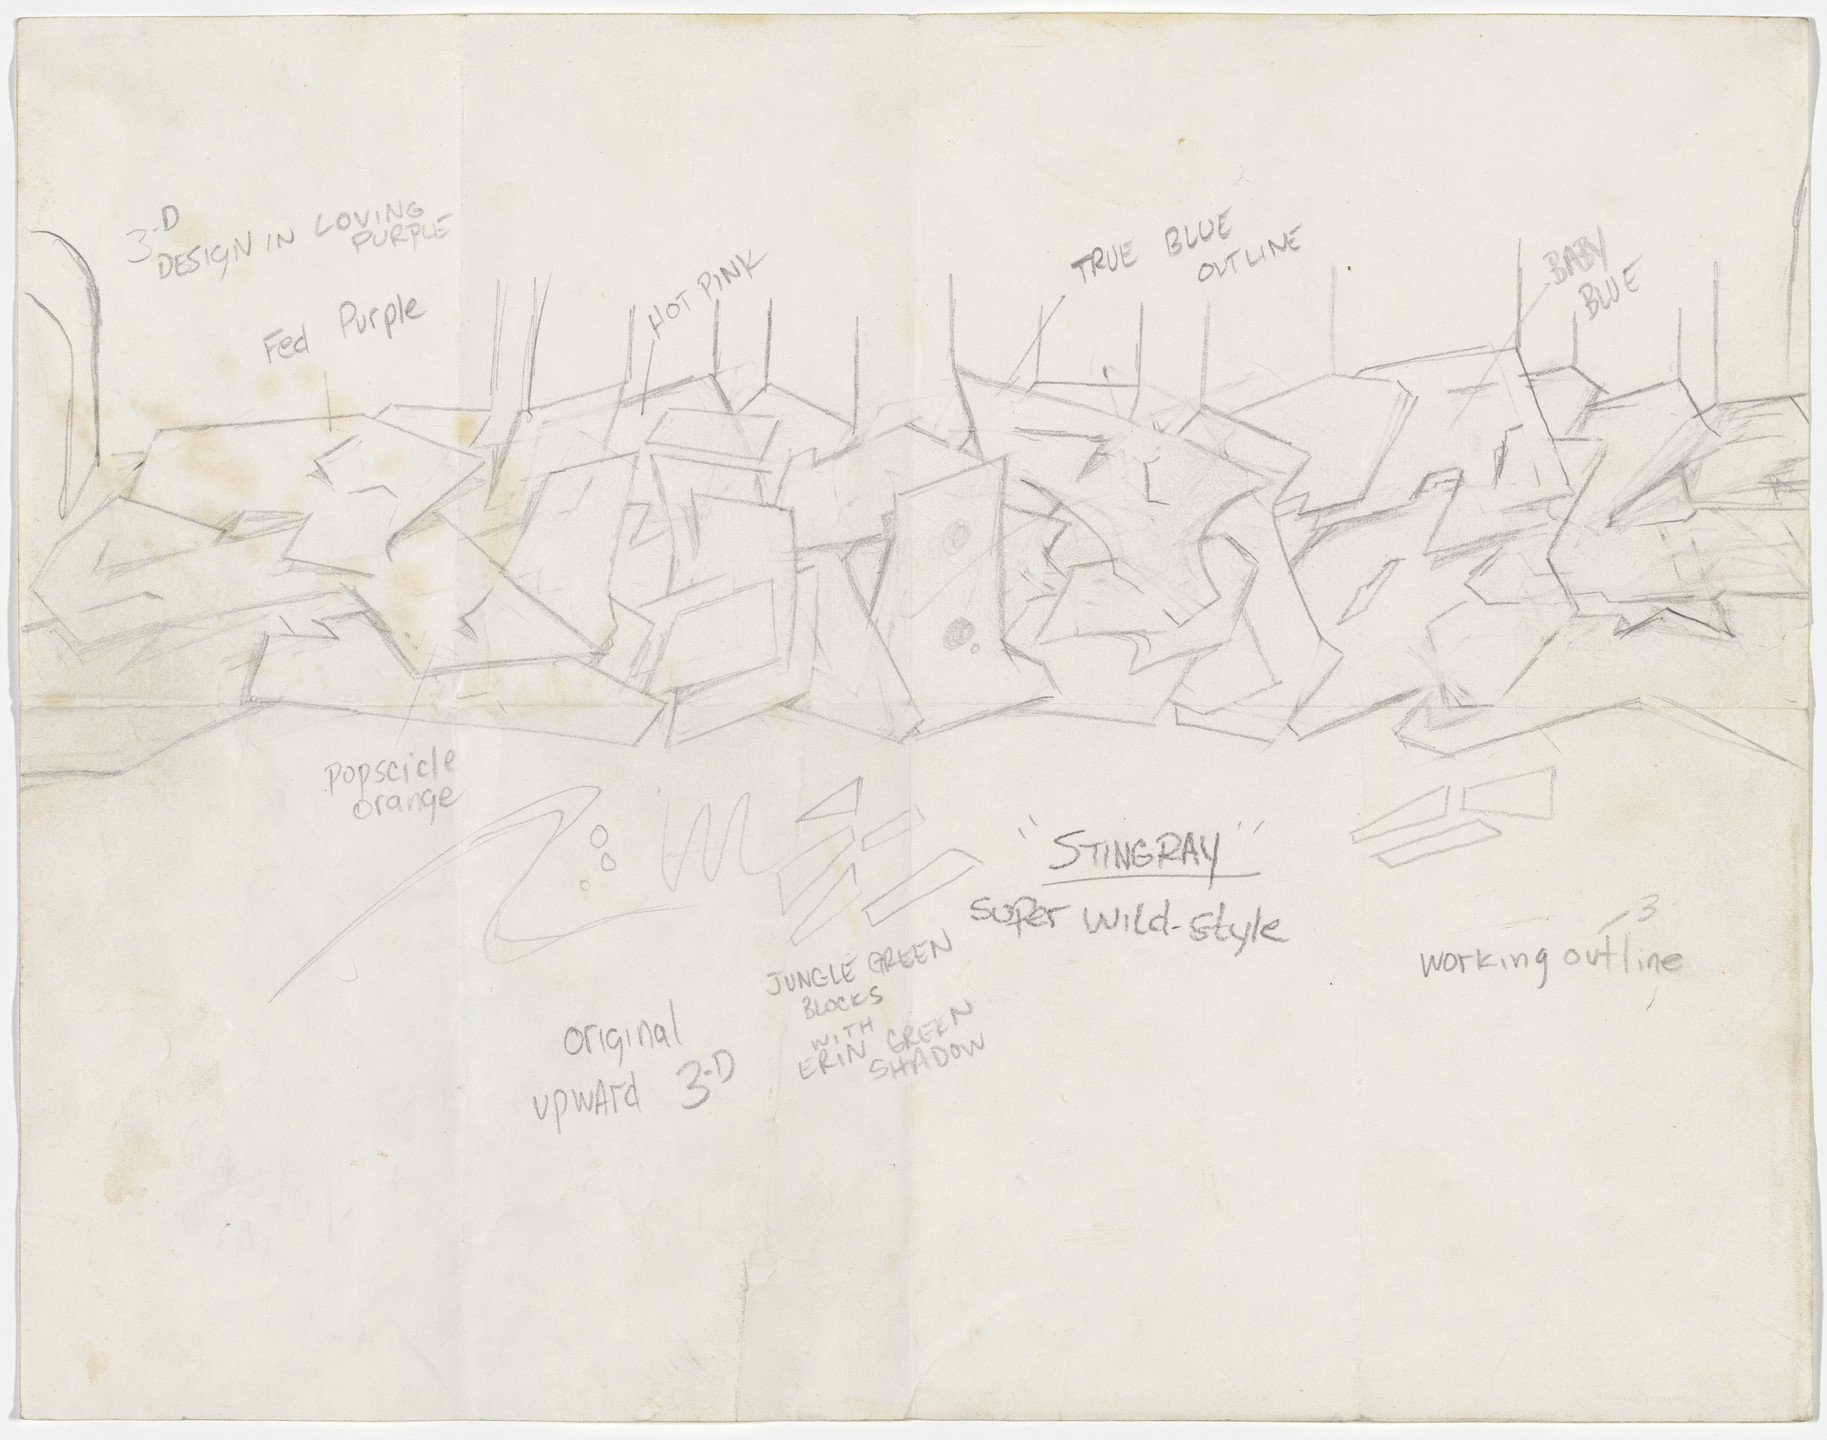 3-D
DESIGN IN LOVING
PURPLE
Fed Purple
HOT PINK
TRUE BLUE
OUTLINE
BABY
BLUE
popscicle
orange
"STINGRAY"
super wild-style
3
working outline
JUNGLE GREEN
BLOCKS
WITH
ERIN GREEN
SHADOW
original
upward 3-D